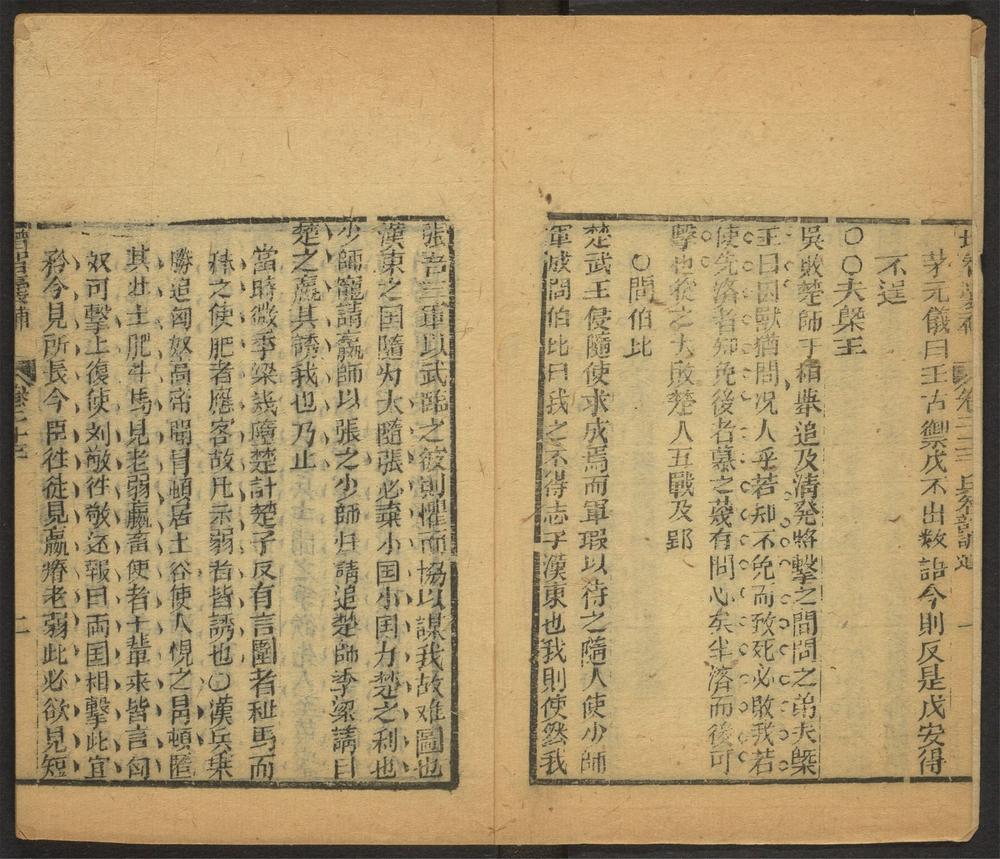 茅元儀曰王古禦戎不出数語今則反是戎安得
不逞
○○夫㮣王
吳敗楚師于栢舉追及淸発將擊之闔閭之弟夫㮣
王曰困獸猶鬪况人乎若知不免而致死必敗我若
使先済者知免後者慕之蔑有鬪心矣半済而後可
擊也從之大敗楚人五戰及郢
○鬪伯比
楚武王侵隨使求成焉而軍瑕以待之隨人使少師
軍鬪伯比曰我之不得志于漢東也我則使然我
張吾三軍以武臨之彼則懼而協以謀我故难圖也
漢東之国隨为大隨張必棄小国小国力楚之利也
少師寵請羸師以張之少師归請追楚師季梁請曰
楚之羸其誘我也乃止
當時微季梁幾墮楚計楚子反有言圍者秣馬而
秣之使肥者應客故凡示弱者皆誘也○漢兵乗
勝追匈奴高帝聞冒頓居土谷使人覘之冒頓匿
其壮士肥牛馬見老弱羸畜使者十輩来皆言匈
奴可擊上復使刘敬徃敬还報曰両国相擊此宜
矜今見所長今臣徃徒見羸瘠老弱此必欲見短
增智囊補
卷二十三
二